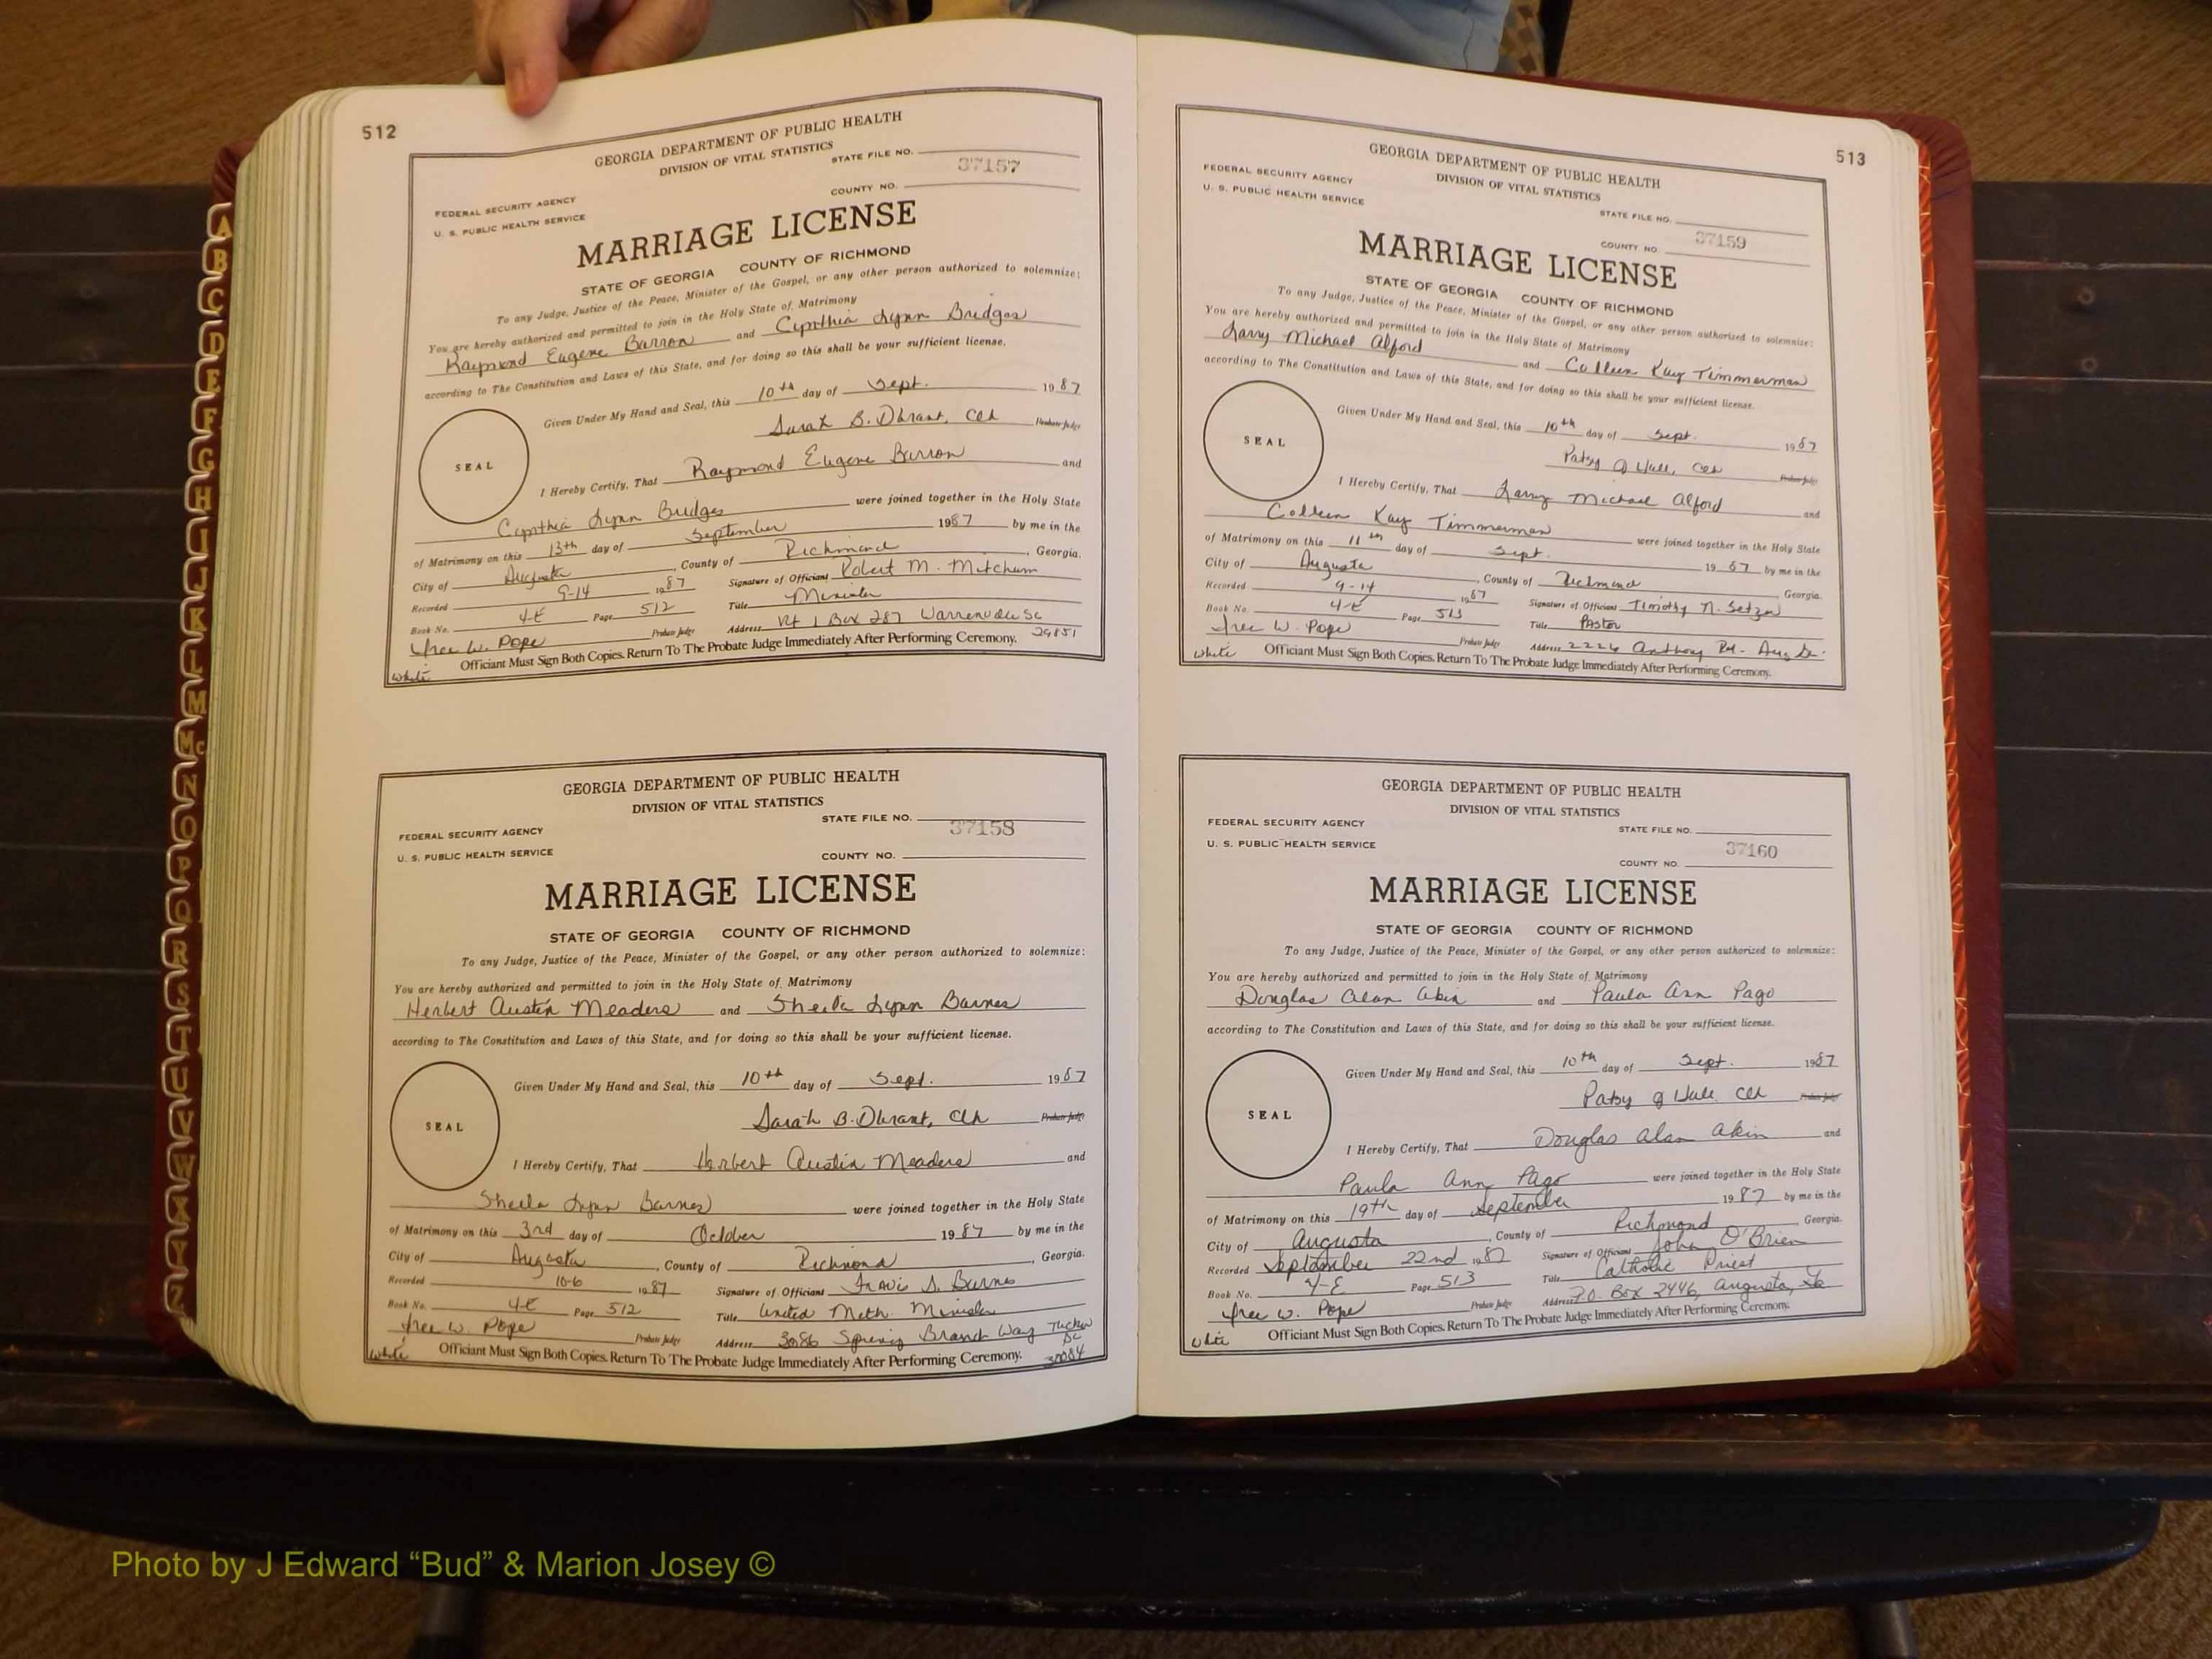 512
GEORGIA DEPARTMENT OF PUBLIC HEALTH
DIVISION OF VITAL STATISTICS
STATE FILE NO.
37157
COUNTY NO.
FEDERAL SECURITY AGENCY
U. S. PUBLIC HEALTH SERVICE
MARRIAGE LICENSE
STATE OF GEORGIA COUNTY OF RICHMOND
To any Judge, Justice of the Peace, Minister of the Gospel, or any other person authorized to solemnize:
You are hereby authorized and permitted to join in the Holy State of Matrimony
Raymond Eugene Barron and Cynthia Lynn Bridges
according to The Constitution and Laws of this State, and for doing so this shall be your sufficient license.
Given Under My Hand and Seal, this 10th day of Sept. 1987
Sarah B. Obrant, Clk Probate Judge
SEAL
I Hereby Certify, That Raymond Eugene Barron and
Cynthia Lynn Bridges were joined together in the Holy State
of Matrimony on this 13th day of September 1987 by me in the
City of Augusta, County of Richmond, Georgia.
Recorded 9-14 1987 Signature of Officiant Robert M. Mitchum
Book No. 4-E Page 512 Title Minister
W. Pope Probate Judge Address Rt 1 Box 287 Warrenville SC
29851
Officiant Must Sign Both Copies. Return To The Probate Judge Immediately After Performing Ceremony.
White
GEORGIA DEPARTMENT OF PUBLIC HEALTH
DIVISION OF VITAL STATISTICS
STATE FILE NO.
37158
FEDERAL SECURITY AGENCY
U. S. PUBLIC HEALTH SERVICE
COUNTY NO.
MARRIAGE LICENSE
STATE OF GEORGIA COUNTY OF RICHMOND
To any Judge, Justice of the Peace, Minister of the Gospel, or any other person authorized to solemnize:
You are hereby authorized and permitted to join in the Holy State of Matrimony
Herbert Austin Meaders and Sheila Lynn Barnes
according to The Constitution and Laws of this State, and for doing so this shall be your sufficient license.
Given Under My Hand and Seal, this 10th day of Sept. 1987
Sarah B. Obrant, Clk Probate Judge
SEAL
I Hereby Certify, That Herbert Austin Meaders and
Sheila Lynn Barnes were joined together in the Holy State
of Matrimony on this 3rd day of October 1987 by me in the
City of Augusta, County of Richmond, Georgia.
Recorded 10-6 1987 Signature of Officiant Travis S. Barnes
Book No. 4-E Page 512 Title United Meth. Minister
W. Pope Probate Judge Address 3086 Spring Branch Way Tucker
30084
Officiant Must Sign Both Copies. Return To The Probate Judge Immediately After Performing Ceremony.
White
513
GEORGIA DEPARTMENT OF PUBLIC HEALTH
DIVISION OF VITAL STATISTICS
FEDERAL SECURITY AGENCY
U. S. PUBLIC HEALTH SERVICE
STATE FILE NO.
37159
COUNTY NO.
MARRIAGE LICENSE
STATE OF GEORGIA COUNTY OF RICHMOND
To any Judge, Justice of the Peace, Minister of the Gospel, or any other person authorized to solemnize:
You are hereby authorized and permitted to join in the Holy State of Matrimony
Larry Michael Alford and Colleen Kay Timmerman
according to The Constitution and Laws of this State, and for doing so this shall be your sufficient license.
Given Under My Hand and Seal, this 10th day of Sept. 1987
Patsy J Hall, Clk Probate Judge
SEAL
I Hereby Certify, That Larry Michael Alford and
Colleen Kay Timmerman were joined together in the Holy State
of Matrimony on this 11th day of Sept. 1987 by me in the
City of Augusta, County of Richmond Georgia.
Recorded 9-14 1987 Signature of Officiant Timothy N. Setzer
Book No. 4-E Page 513 Title Pastor
W. Pope Probate Judge Address 2226 Anthony Rd. Aug Ga.
Officiant Must Sign Both Copies. Return To The Probate Judge Immediately After Performing Ceremony.
White
GEORGIA DEPARTMENT OF PUBLIC HEALTH
DIVISION OF VITAL STATISTICS
FEDERAL SECURITY AGENCY
STATE FILE NO.
U. S. PUBLIC HEALTH SERVICE
37160
COUNTY NO.
MARRIAGE LICENSE
STATE OF GEORGIA COUNTY OF RICHMOND
To any Judge, Justice of the Peace, Minister of the Gospel, or any other person authorized to solemnize:
You are hereby authorized and permitted to join in the Holy State of Matrimony
Douglas Alan Akin and Paula Ann Pago
according to The Constitution and Laws of this State, and for doing so this shall be your sufficient license.
Given Under My Hand and Seal, this 10th day of Sept. 1987
Patsy J Hall Clk Probate Judge
SEAL
I Hereby Certify, That Douglas Alan Akin and
Paula Ann Pago were joined together in the Holy State
of Matrimony on this 19th day of September 1987 by me in the
City of Augusta, County of Richmond, Georgia.
Recorded September 22nd 1987 Signature of Officiant John O'Brien
Book No. 4-E Page 513 Title Catholic Priest
W. Pope Probate Judge Address P.O. Box 2446, Augusta, Ga
Officiant Must Sign Both Copies. Return To The Probate Judge Immediately After Performing Ceremony.
White
A
B
C
D
E
F
G
H
I
J
K
L
M
Mc
N
O
P
Q
R
S
T
U
V
W
X
Y
Z
Photo by J Edward “Bud” & Marion Josey ©